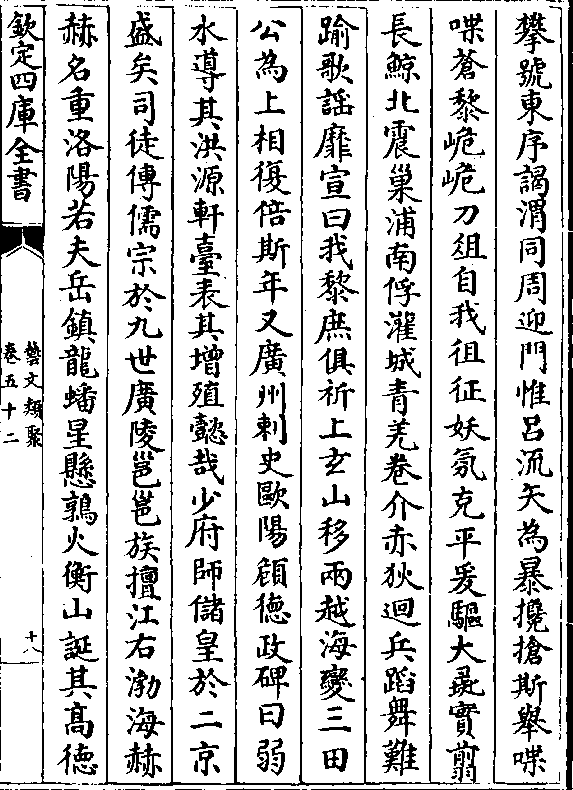 攀號東序謁渭同周迎門惟呂流矢為暴攙搶斯舉喋
喋蒼黎峗峗刀俎自我徂征妖氛克平爰驅大彘實翦
長鯨北震巢浦南俘灌城青羌卷介赤狄迴兵蹈舞難
踰歌謡靡宣曰我黎庶俱祈上玄山移兩越海變三田
公為上相復倍斯年又廣州刺史歐陽頠德政碑曰弱
水導其洪源軒臺表其增殖懿哉少府師儲皇於二京
盛矣司徒傳儒宗於九世廣陵邕邕族擅江右渤海赫
赫名重洛陽若夫岳鎮龍蟠星懸鶉火衡山誕其高德
欽定四庫全書
藝文類聚
卷五十二
十八